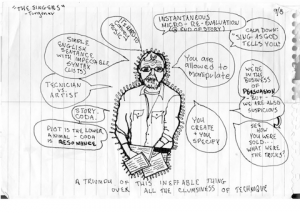 "THE SINGERS"
- Turgenev
9/8
INSTANTANEOUS
MICRO-RE-EVALUATION
@ END OF STORY!
CALM DOWN.
"SING AS GOD
TELLS YOU"
SIMPLE
ENGLISH
SENTENCE
WITH IMPECCABLE
SYNTAX
(LISTS)
You are
allowed to
manipulate
TECHNICIAN
VS.
ARTIST
WE'RE
IN THE
BUSINESS
OF
PERSUASION
BUT
WE ARE ALSO
SUSPICIOUS
STORY
CODA
PLOT IS THE LOWER
ANIMAL - CODA
IS RESONANCE
YOU
CREATE
+ YOU
SPECIFY
SEE
HOW
YOU WERE
SOLD.
WHAT WERE
THE TRICKS?
A TRIUMPH OF THIS INEFFABLE THING
OVER ALL THE CLUMSINESS OF TECHNIQUE